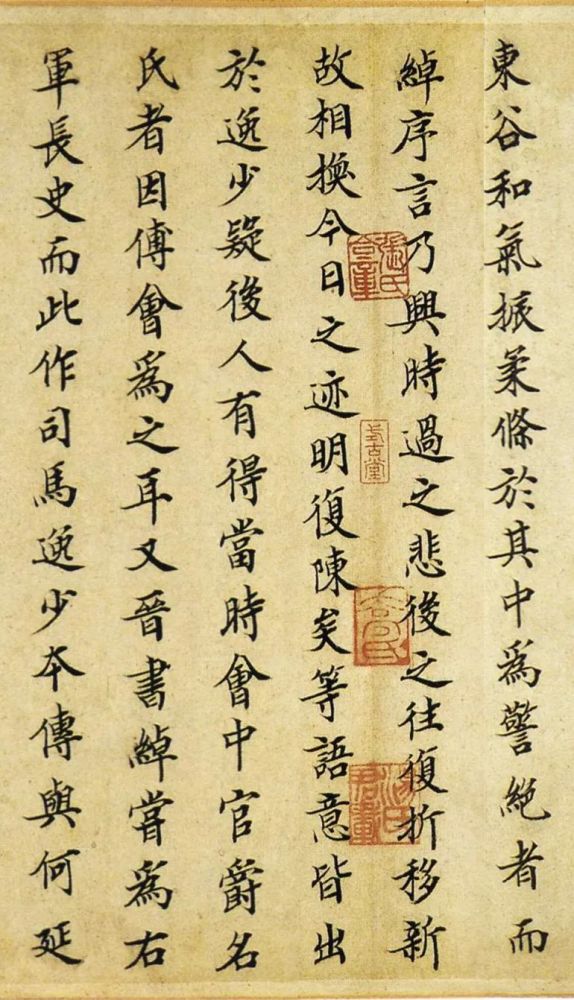 東谷和氣振柔條於其中爲警絶者而
綽序言乃興時過之悲後之往復折移新
故相換今日之迹明復陳矣等語意皆出
於逸少疑後人有得當時會中官爵名
氏者因傅會爲之耳又晉書綽嘗爲右
軍長史而此作司馬逸少本傳與何延